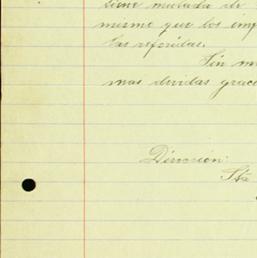 tiene mandada de
misme que los emp
las referidas.
Sin m
mas devidas graci
Dirección:
Sta